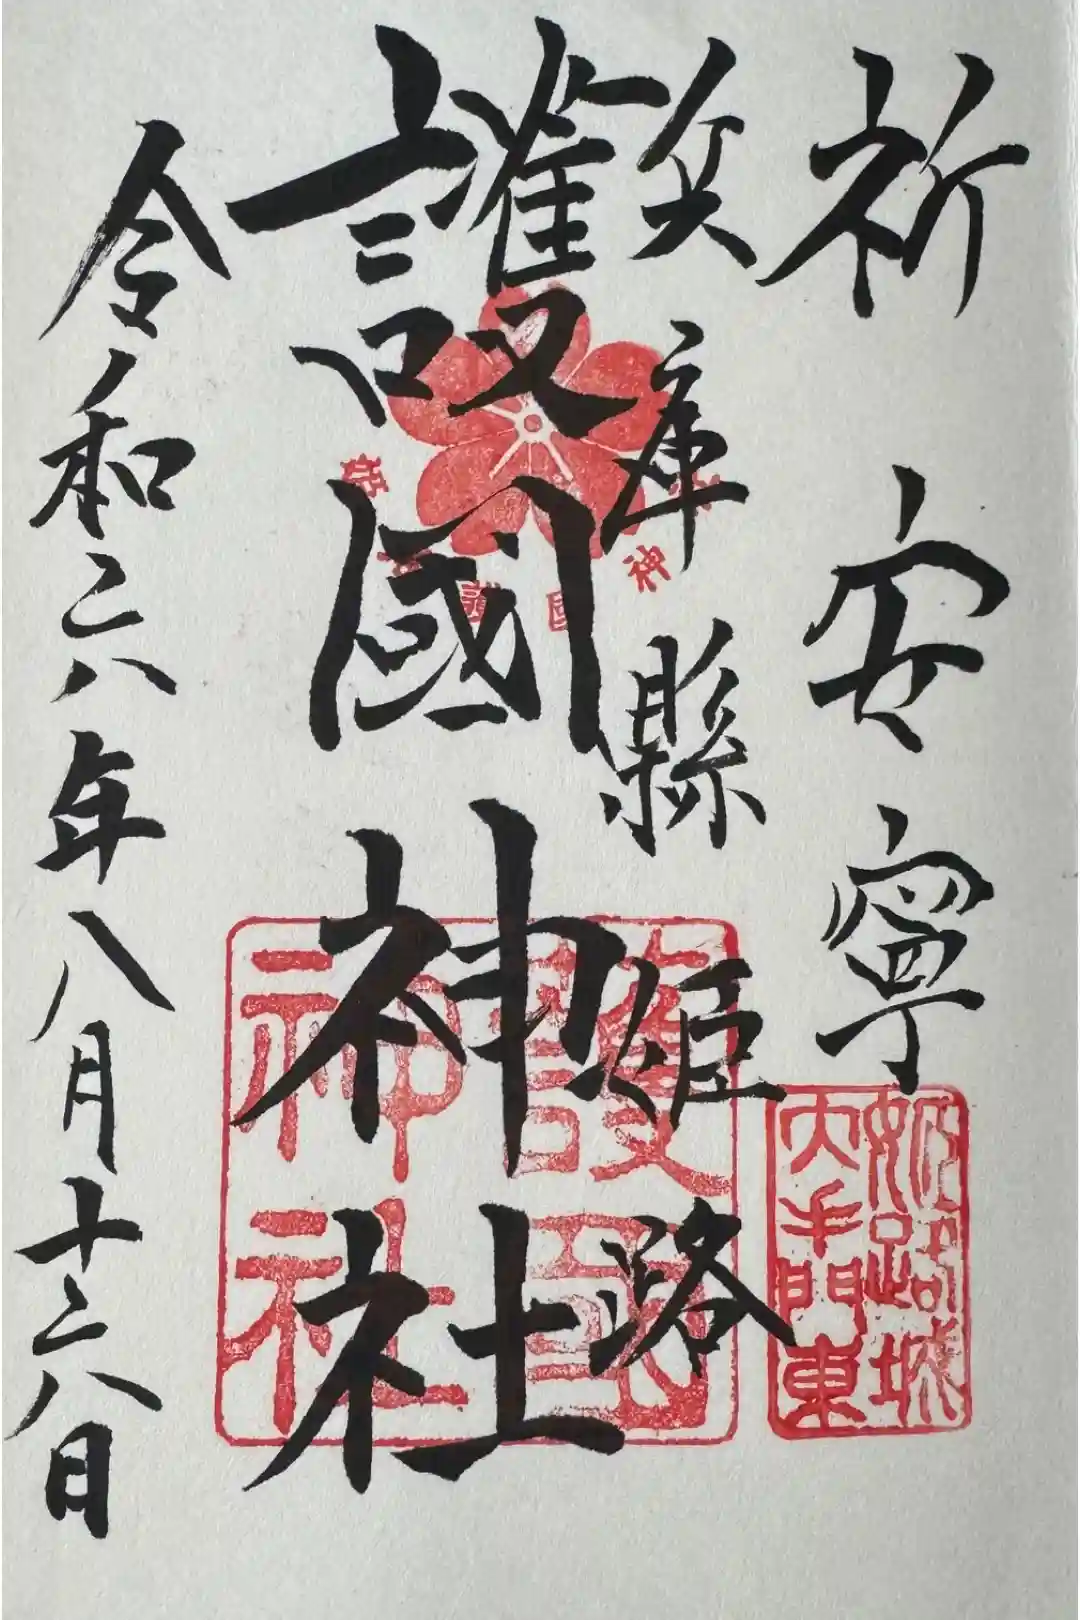 祈安寧
兵庫縣姫路
護國神社
令和六年八月十六日
姫路護國神社
護國
神社
姫路城
大手門東